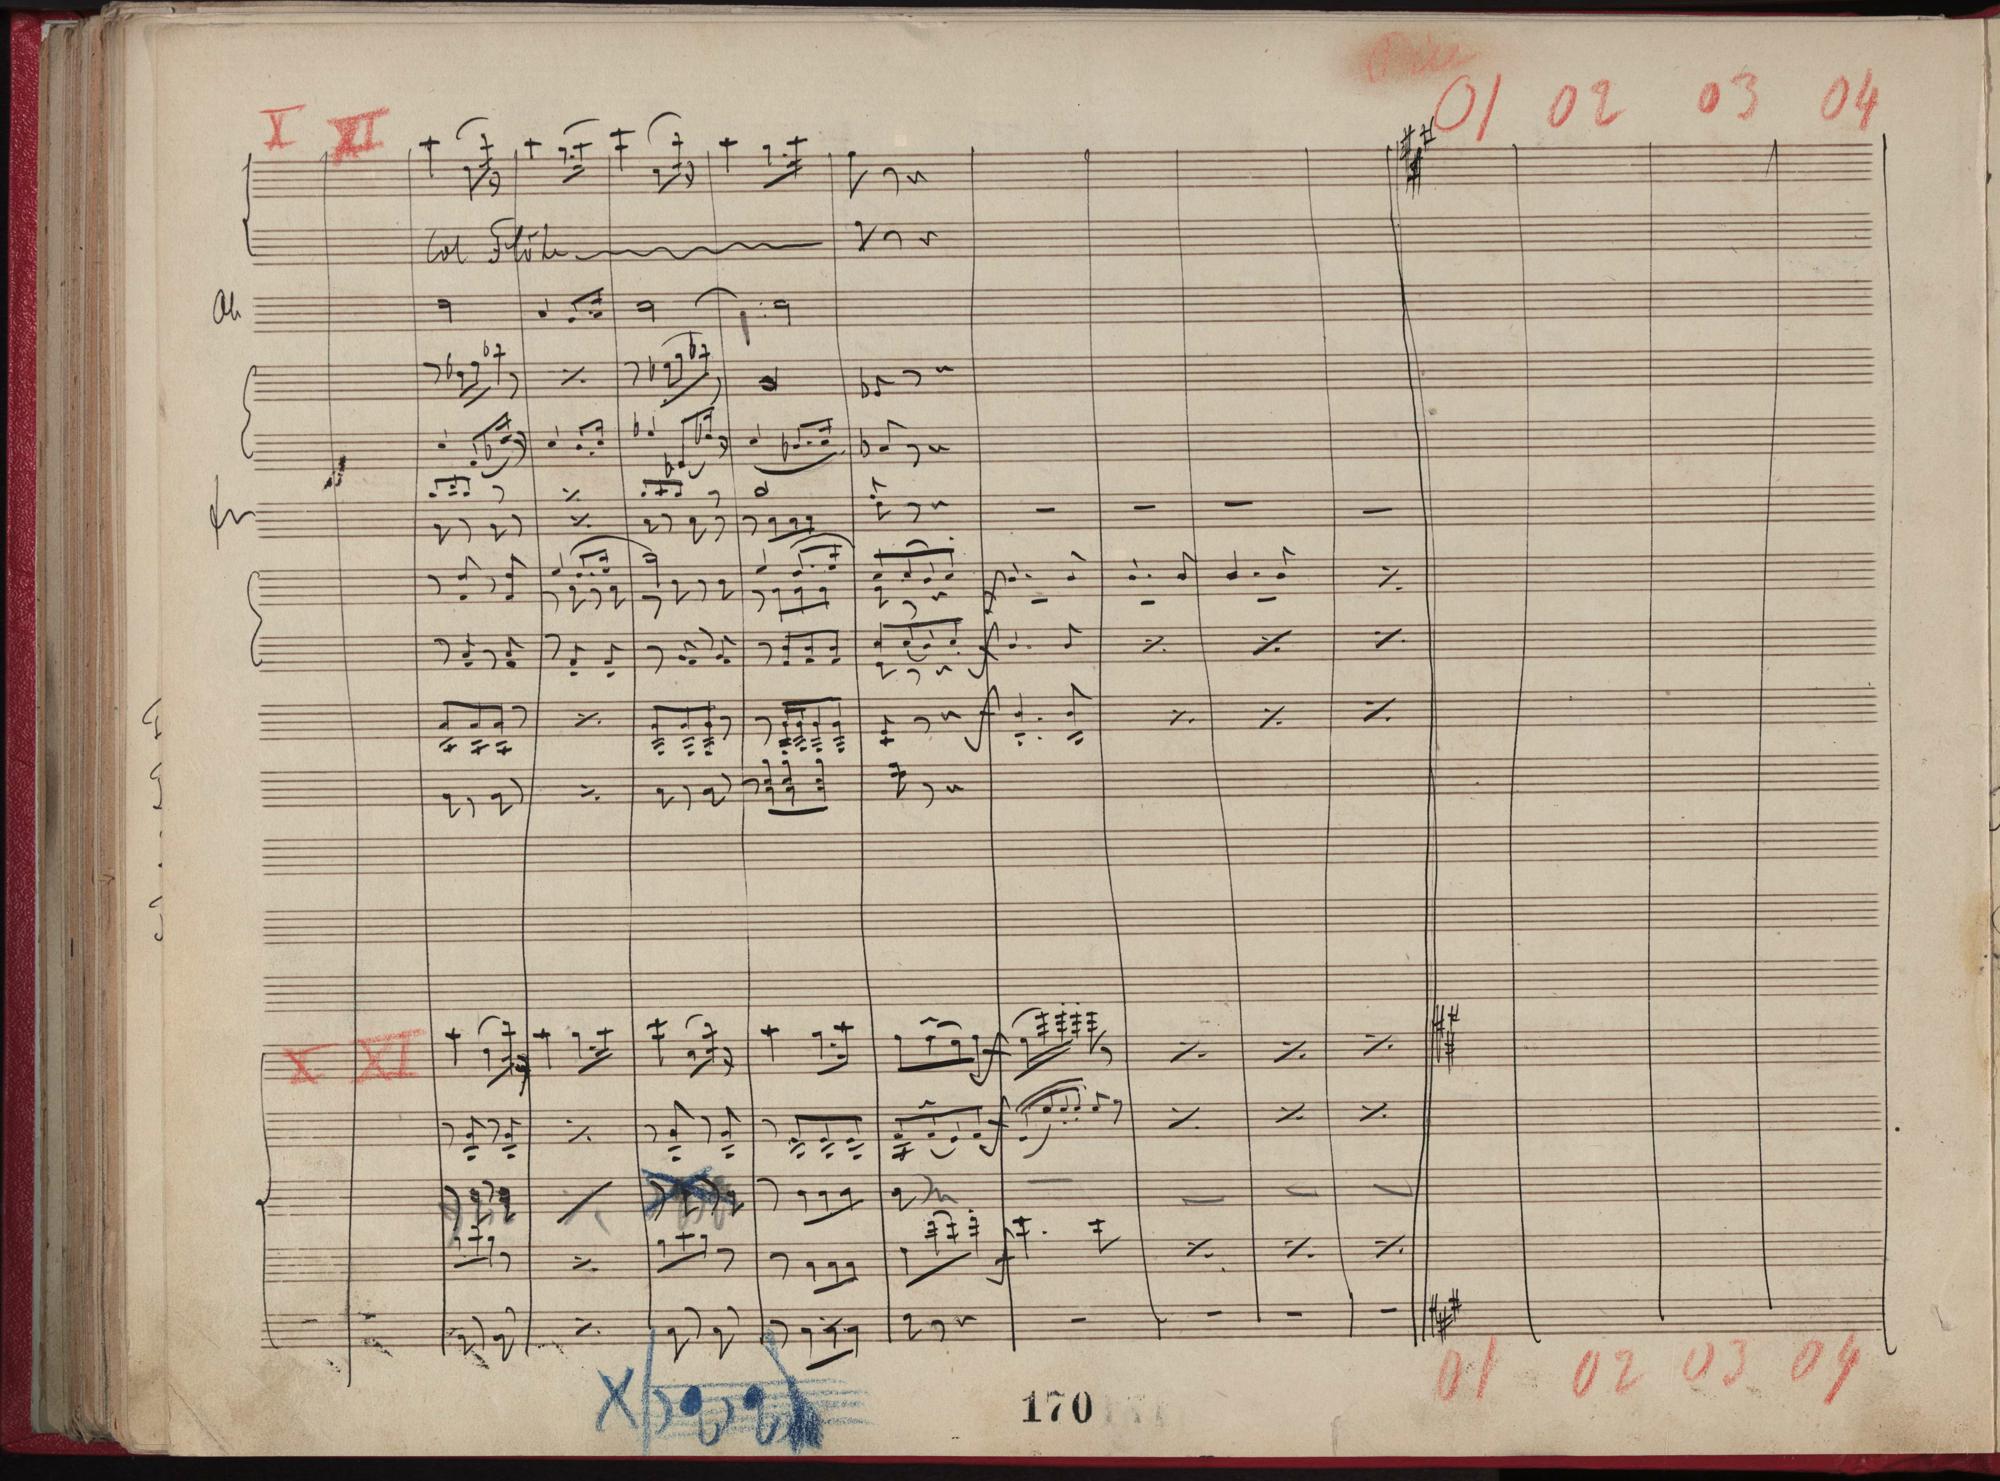 X XI
01 02 03 04
Col Flöte
Ob
X XI
01 02 03 04
X
170